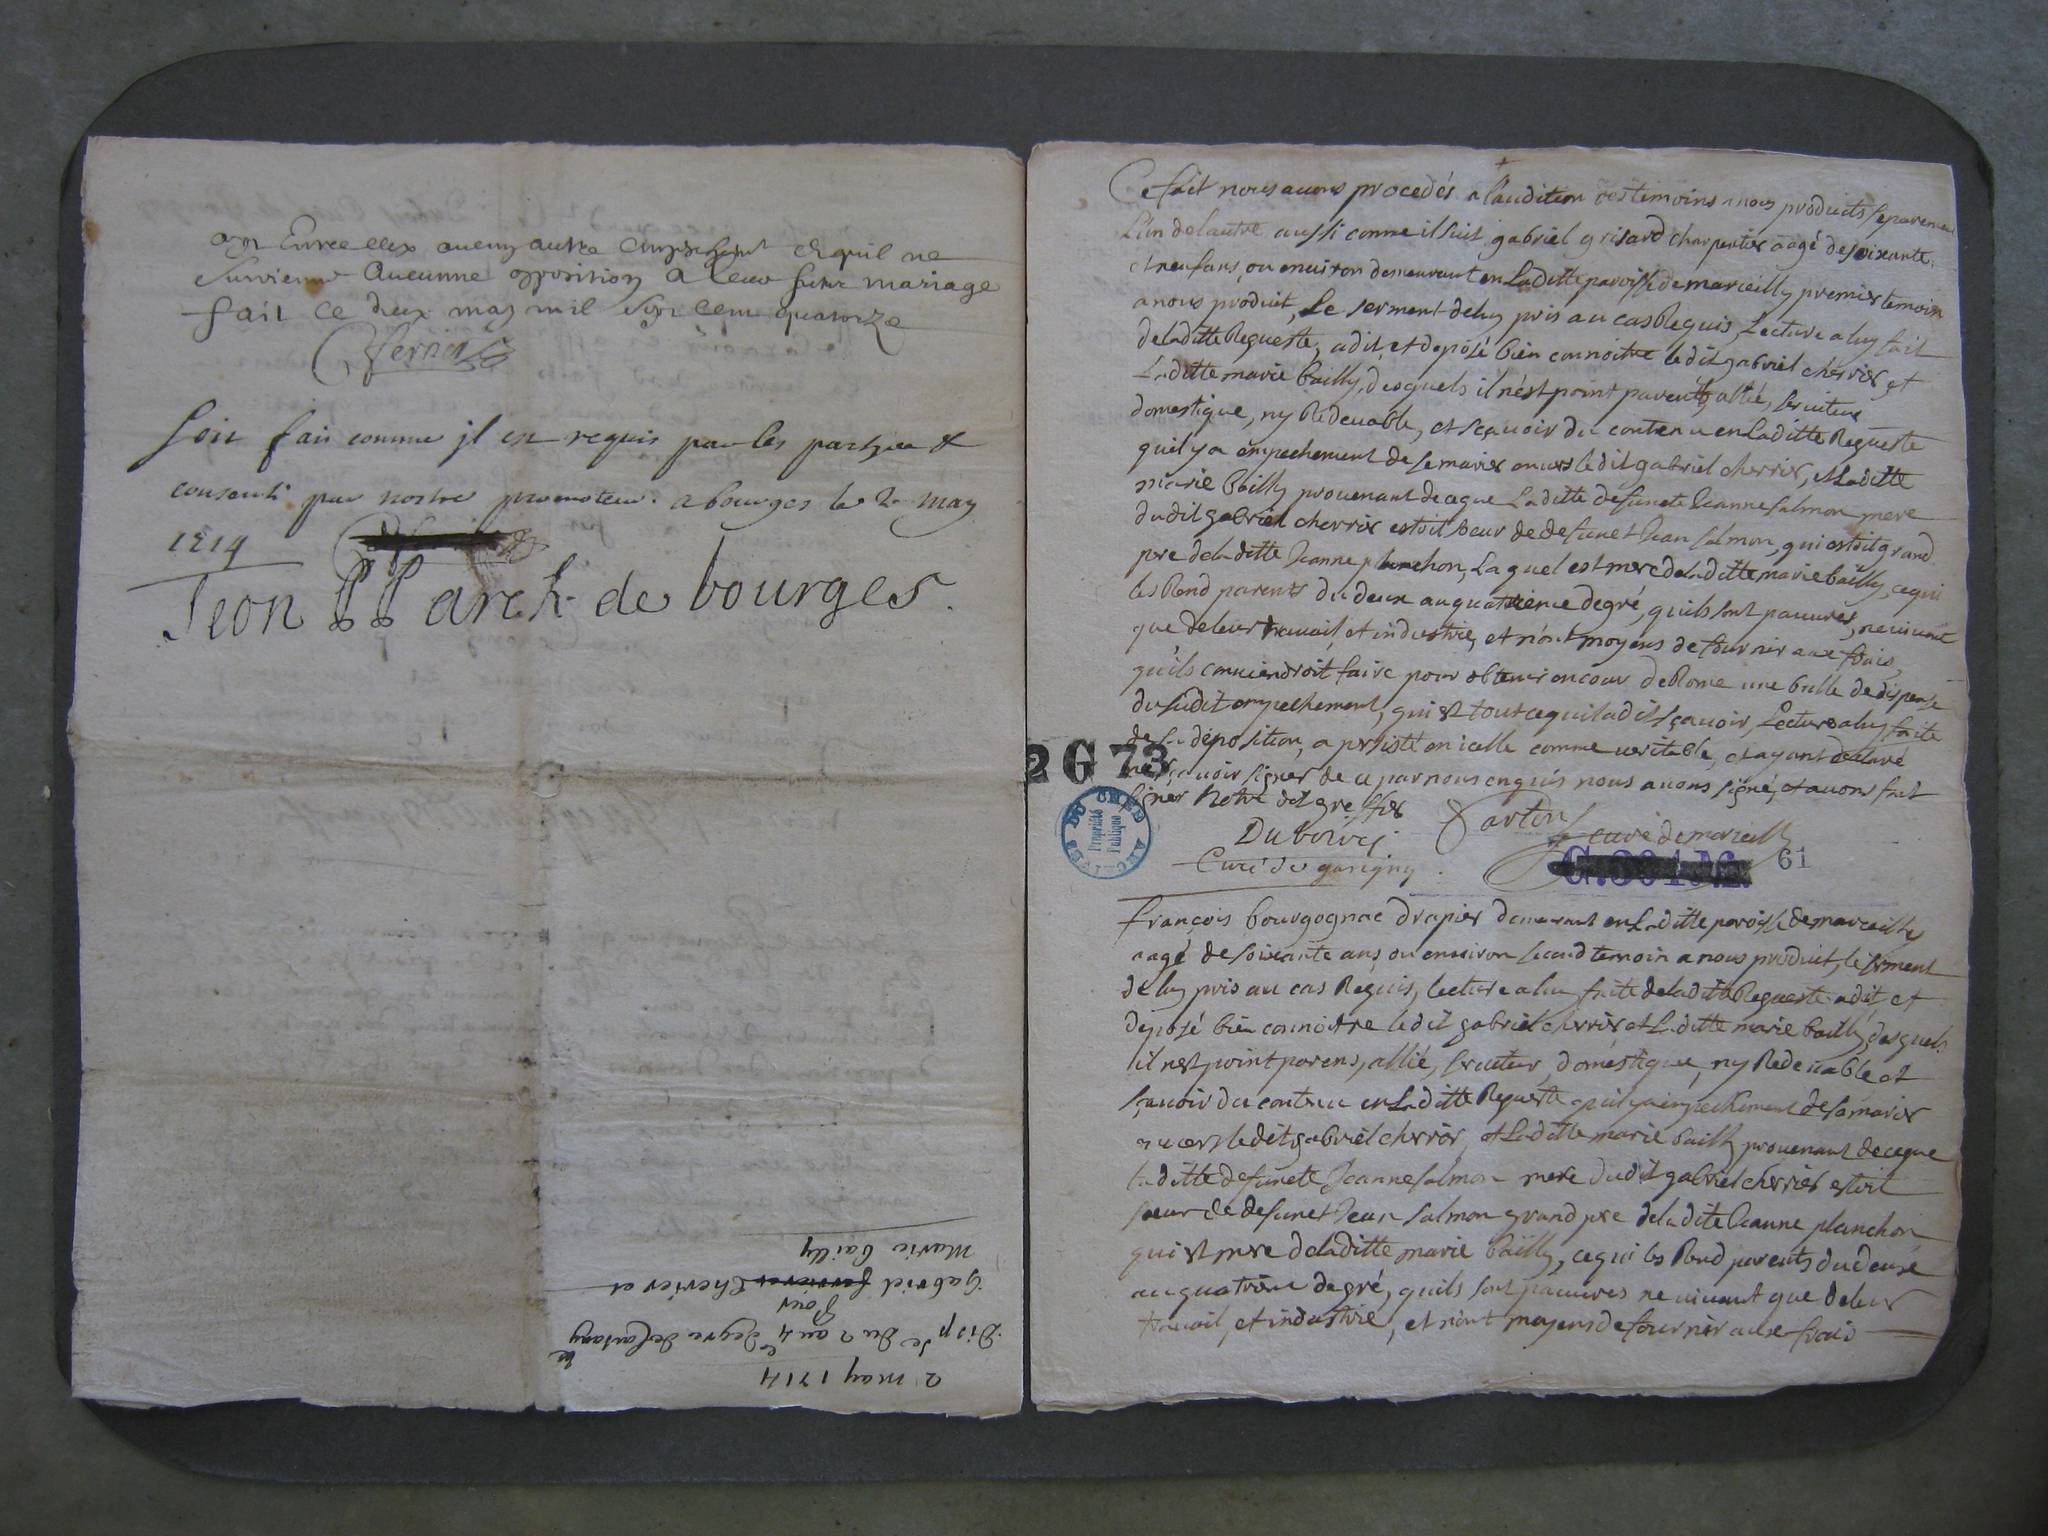 ayt Entre eux aucun autre empeschement et quil ne
survienne Aucunne opposition a leur futur mariage
fait ce deux may mil sept cent quatorze
soit fait comme jl est requis par les partyes &
consenti par nostre promoteur. a bourges le 2 may
1714
Leon PP arch. de bourges.
2 may 1714
Disp. de du 2 au 4e degre de
pour
Gabriel Cherier et
Marie bailly
Ce fait nous avons procedés a l'audition des temoins a nous produits separement
L'un de lautre aussi comme il suit gabriel grisard charpentier aagé de soixante
et neuf ans, ou environ demeurant en Laditte paroisse de marcilly premier temoin
a nous produit, Le serment de luy pris au cas Requis, Lecture a luy fait
de laditte Requeste, a dit, et deposé bien connoitre ledit gabriel cherrier, et
Laditte marie bailly, desquels il n'est point parent, allié, serviteur
domestique, ny Redevable, et sçavoir du contenu en Laditte Requeste
quil y a empechement de se marier envers ledit gabriel cherrier, et Laditte
marie bailly provenant de ce que Laditte defuncte Jeanne salmon mere
dudit gabriel cherrier estoit soeur de defunct Jean salmon, qui estoit grand
pere de laditte Jeanne planchon, Laquel est mere de laditte marie bailly, ce qui
les Rend parents du deux au quatrieme degré, quils sont pauvres, ne vivant
que de leur travail, et industrie, et n'ont moyens de fournir aux frais,
quils conviendroit faire pour obtenir en cour de Rome une bulle de dispense
du susdit empechement, qui est tout ce quil a dit sçavoir, Lecture a luy faite
de sa déposition, a persisté en icelle comme veritable, et ayant declaré
ne sçavoir signer de ce par nous enquis nous avons signé, et avons fait
signer Notre dit greffier
Dubois Tarton
Curé de garigny curé de marcilly
2 G 73
ARCHIVES DU CHER
Propriété
Publique
61
François bourgognac drapier demeurant en Laditte paroisse de marcilly
aagé de soixante ans, ou environ second temoin a nous produit, le serment
de luy pris au cas Requis, lecture a luy faite de laditte Requeste a dit et
deposé bien connoitre ledit gabriel cherrier et Laditte marie bailly, desquels
il n'est point parens, allié, serviteur, domestique, ny Redevable et
sçavoir du contenu en Laditte Requeste quil y a empechement de se marier
envers ledit gabriel cherrier, et Laditte marie bailly provenant de ce que
laditte defuncte Jeanne salmon mere dudit gabriel cherrier estoit
soeur de defunct Jean salmon grand pere de ladite Jeanne planchon
qui est mere de laditte marie bailly, ce qui les Rend parents du deuxe
au quatrieme degré, quils sont pauvres ne vivant que de leur
travail, et industrie, et n'ont moyens de fournir aux frais